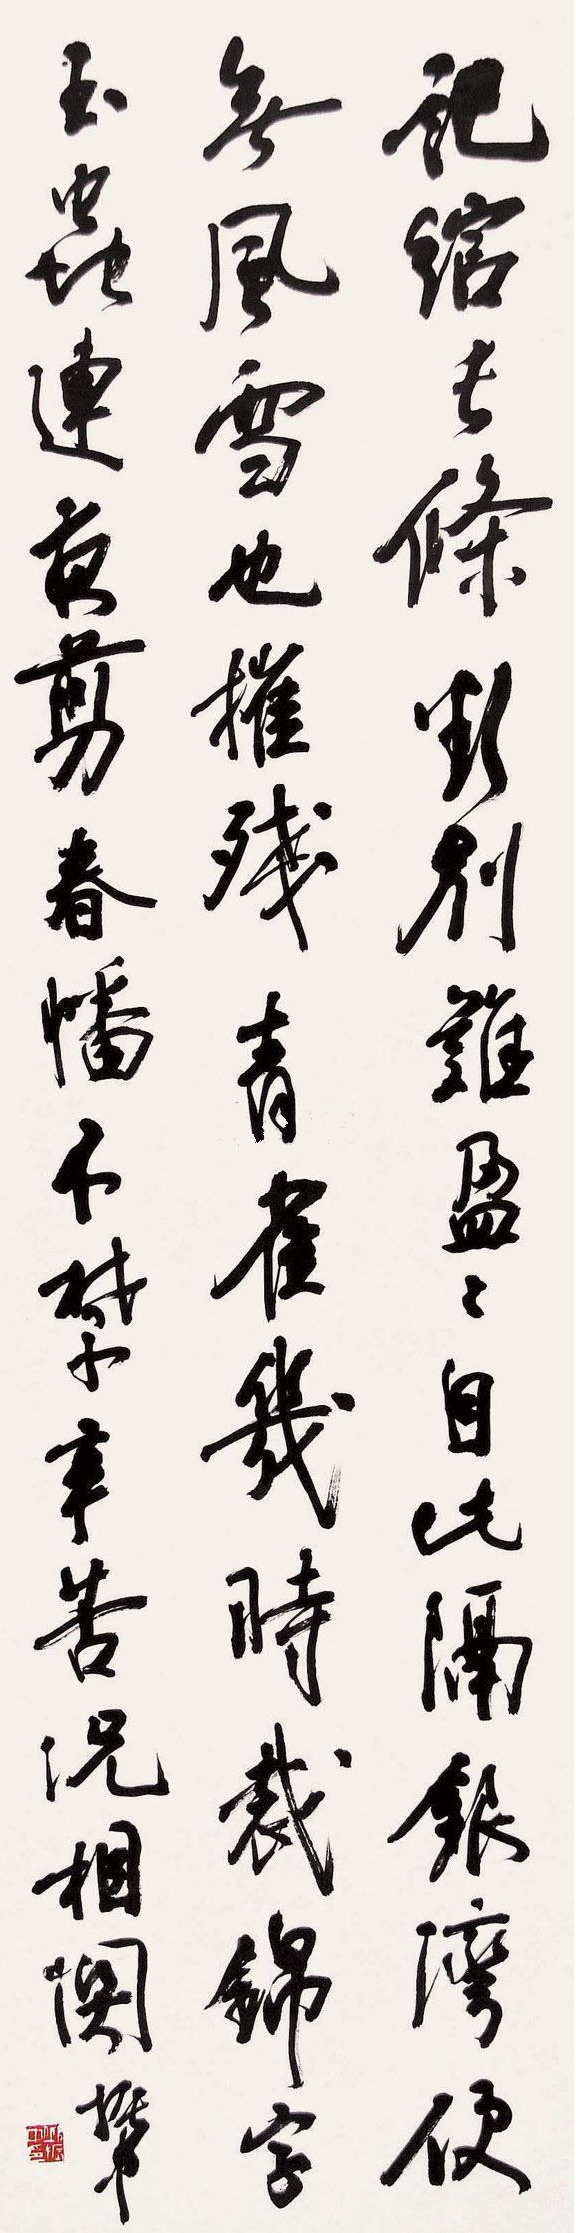 記綰長條欲別難盈〻自此隔銀灣便
無風雪也摧残青雀幾時裁錦字
玉蟲連夜剪春幡不禁辛苦況相関